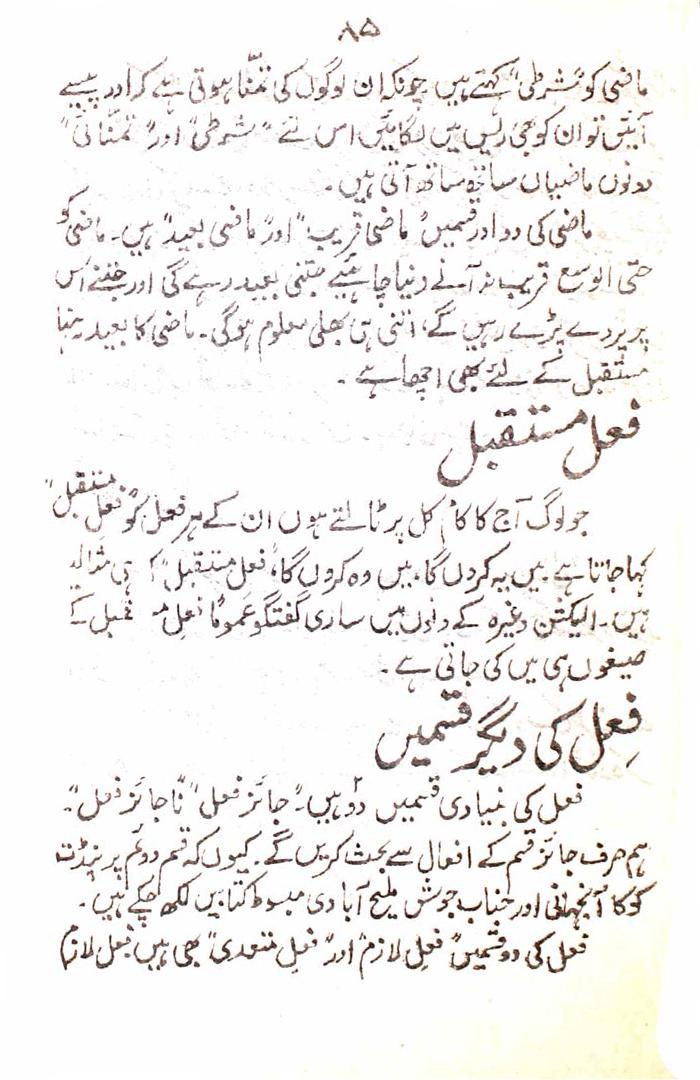 ۸۵
ماضی کو "شرطی" کہتے ہیں چونکہ ان لوگوں کی تمنّا ہوتی ہے کہ اور پیسے
آئیں تو ان کو بھی ریس میں لگائیں اس لئے "شرطی" اور "تمنّائی"
دونوں ماضیاں ساتھ ساتھ آتی ہیں۔
ماضی کی دو اور قسمیں "ماضی قریب" اور "ماضی بعید" ہیں۔ ماضی کو
حتی الوسع قریب نہ آنے دینا چاہئیے جتنی بعید رہے گی اور جتنے اس
پر پردے پڑے رہیں گے، اتنی ہی بھلی معلوم ہوگی۔ ماضی کا بعید رہنا
مستقبل کے لئے بھی اچھا ہے۔
فعل مستقبل
جو لوگ آج کا کام کل پر ٹالتے ہوں ان کے ہر فعل کو "فعل مستقبل"
کہا جاتا ہے۔ میں یہ کروں گا، میں وہ کروں گا، "فعل مستقبل" کی ہی مثالیں
ہیں۔ الیکشن وغیرہ کے دنوں میں ساری گفتگو عموماً فعل مستقبل کے
صیغوں ہی میں کی جاتی ہے۔
فِعل کی دیگر قسمیں
فعل کی بنیادی قسمیں دو ہیں۔ "جائز فعل" "ناجائز فعل"۔
ہم صرف جائز قسم کے افعال سے بحث کریں گے۔ کیوں کہ قسم دوئم پر پنڈت
کوکا آنجہانی اور جناب جوش ملیح آبادی مبسوط کتابیں لکھ چکے ہیں۔
فعل کی دو قسمیں "فعلِ لازم" اور "فعلِ متعدی" بھی ہیں۔ فعل لازم